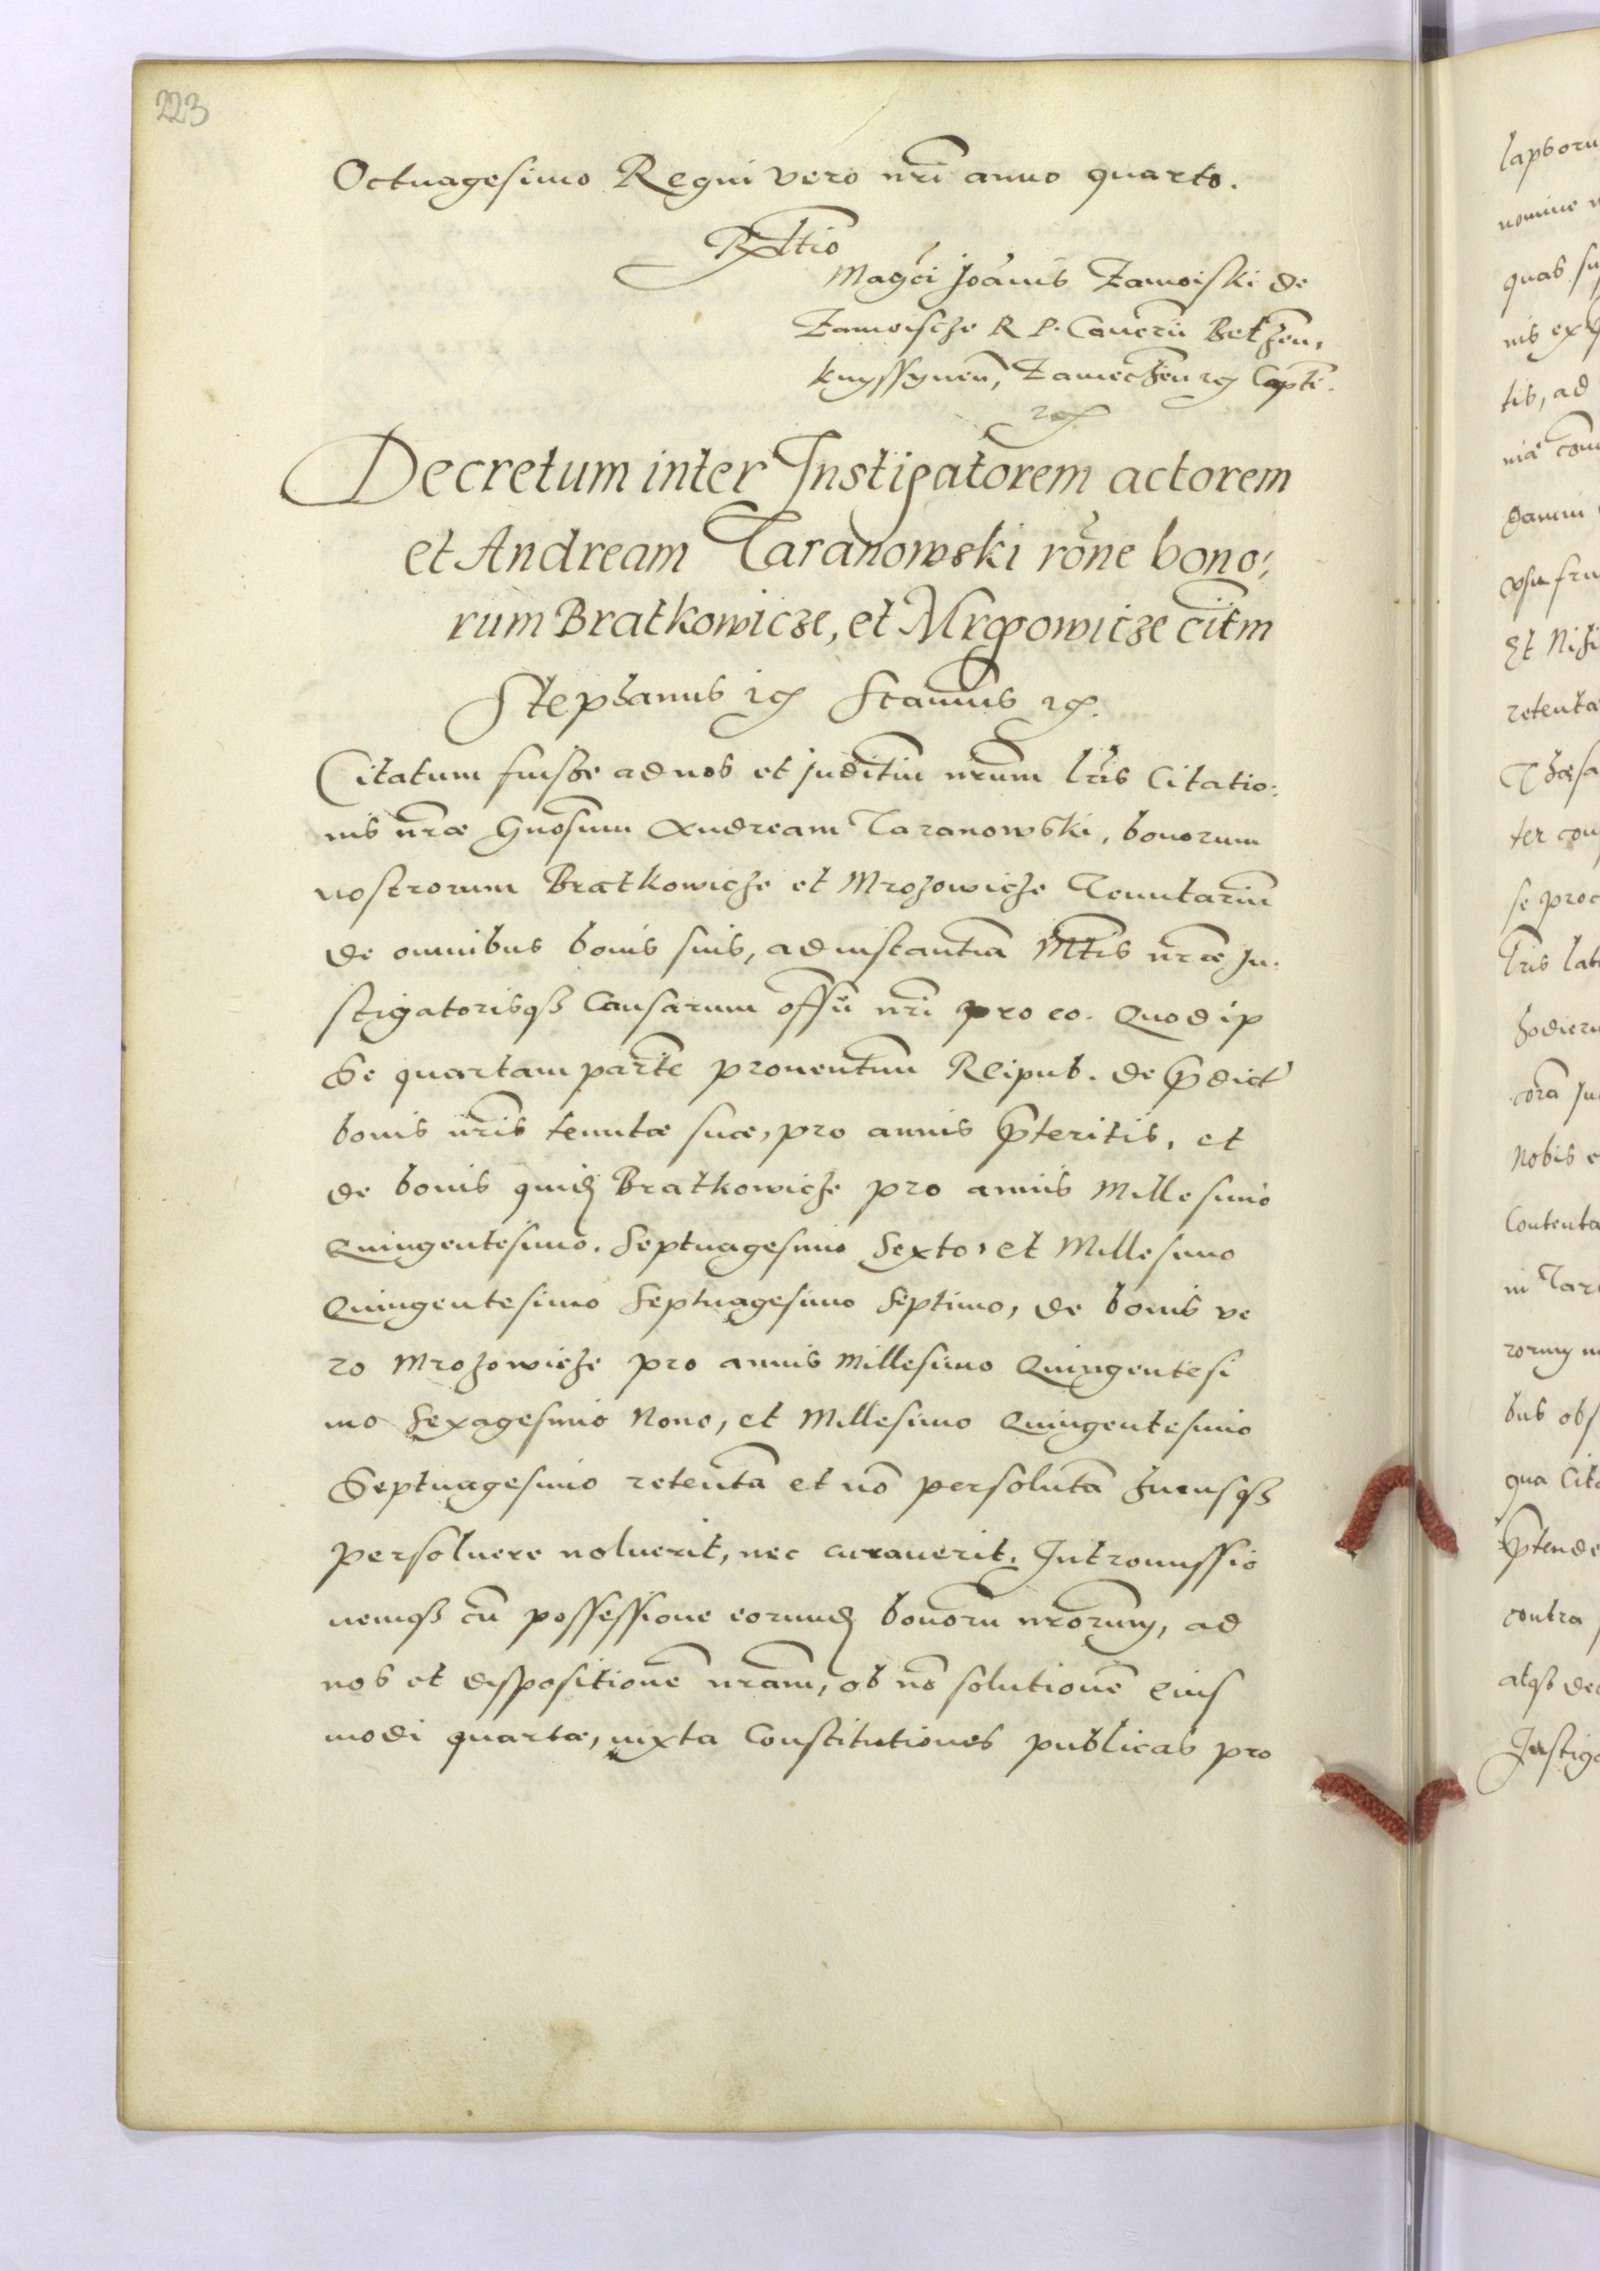 223
Octuagesimo Regni vero nri anno quarto.
Rltio
Magci Joanis Zamoiski de
Zamoiscze R P. Cancrii Belzen,
knyssynen, Zamechen rc Capte.
rc
Decretum inter Instigatorem actorem
et Andream Taranowski rone bono:
rum Bratkowicze, et Mrozowicze citm
Stephanus rc Scamus rc.
Citatum fuisse ad nos et Juditiu nrum lris Citatio:
nis nræ Gnosum Andream Taranowski, bonorum
nostrorum Bratkowicze et Mrozowicze Tenutariu
de omnibus bonis suis, ad instantia Mtis nræ In:
stigatorisqz Causarum offii nri pro eo. Quod ip
se quartam parte prouentuu Reipub. de pdict
bonis nris tenutæ suæ, pro annis pteritis, et
de bonis quid Bratkowicze pro annis Millesimo
Quingentesimo. Septuagesimo Sexto, et Millesimo
Quingentesimo Septuagesimo Septimo, de bonis ve
ro Mrozowicze pro annis Millesimo Quingentesi
mo Sexagesimo Nono, et Millesimo Quingentesimo
Septuagesimo retenta et no persoluta hucusqz
persoluere noluerit, nec curauerit. Intromissio
nemqz cu possessione eorund bonoru nrorum, ad
nos et dispositione nram, ob no solutione eius
modi quartæ, iuxta Constitutiones publicas pro